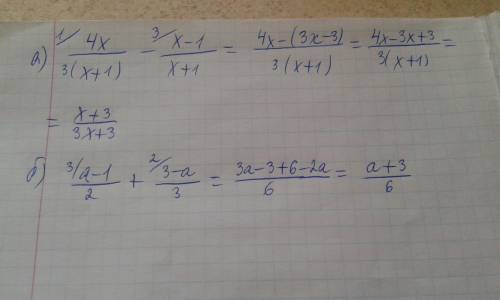 а) ¹⁄ 4x / 3(x+1) − ³⁄ x−1 / x+1 = 4x−(3x−3) / 3(x+1) = 4x−3x+3 / 3(x+1) =
= x+3 / 3x+3
б) ³⁄ a−1 / 2 + ²⁄ 3−a / 3 = 3a−3+6−2a / 6 = a+3 / 6